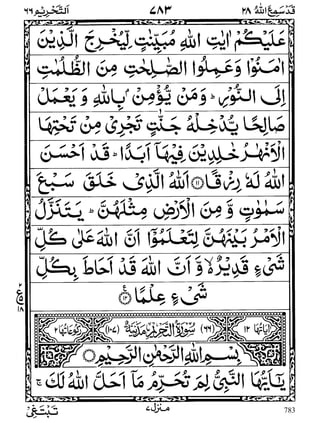 قَدۡسَمِعَ اللّٰهُ ٢٨ ٧٨٣ اَلتَّحۡرِيۡم ٦٦
عَلَيۡكُمۡ اٰيٰتِ اللّٰهِ مُبَيِّنٰتٍ لِّيُخۡرِجَ الَّذِيۡنَ
اٰمَنُوۡا وَعَمِلُوا الصّٰلِحٰتِ مِنَ الظُّلُمٰتِ
اِلَى النُّوۡرِ ؕ وَمَنۡ يُّؤۡمِنۡۢ بِاللّٰهِ وَيَعۡمَلۡ
صَالِحًا يُّدۡخِلۡهُ جَنّٰتٍ تَجۡرِىۡ مِنۡ تَحۡتِهَا
الۡاَنۡهٰرُ خٰلِدِيۡنَ فِيۡهَاۤ اَبَدًا ؕ قَدۡ اَحۡسَنَ
اللّٰهُ لَهٗ رِزۡقًا ۝۱۱ اَللّٰهُ الَّذِىۡ خَلَقَ سَبۡعَ
سَمٰوٰتٍ وَّمِنَ الۡاَرۡضِ مِثۡلَهُنَّ ؕ يَتَنَزَّلُ
الۡاَمۡرُ بَيۡنَهُنَّ لِتَعۡلَمُوۡۤا اَنَّ اللّٰهَ عَلٰى كُلِّ
شَىۡءٍ قَدِيۡرٌ ۙ وَّاَنَّ اللّٰهَ قَدۡ اَحَاطَ بِكُلِّ
شَىۡءٍ عِلۡمًا ۝۱۲
اٰيَاتُهَا ١٢ (٦٦) سُوۡرَةُ التَّحۡرِيۡمِ مَدَنِيَّةٌ (١٠٧) رُكُوۡعَاتُهَا ٢
بِسۡمِ اللّٰهِ الرَّحۡمٰنِ الرَّحِيۡمِ
يٰۤاَيُّهَا النَّبِىُّ لِمَ تُحَرِّمُ مَاۤ اَحَلَّ اللّٰهُ لَكَ ۚ
تَبۡتَغِىۡ منزل ٧ 783